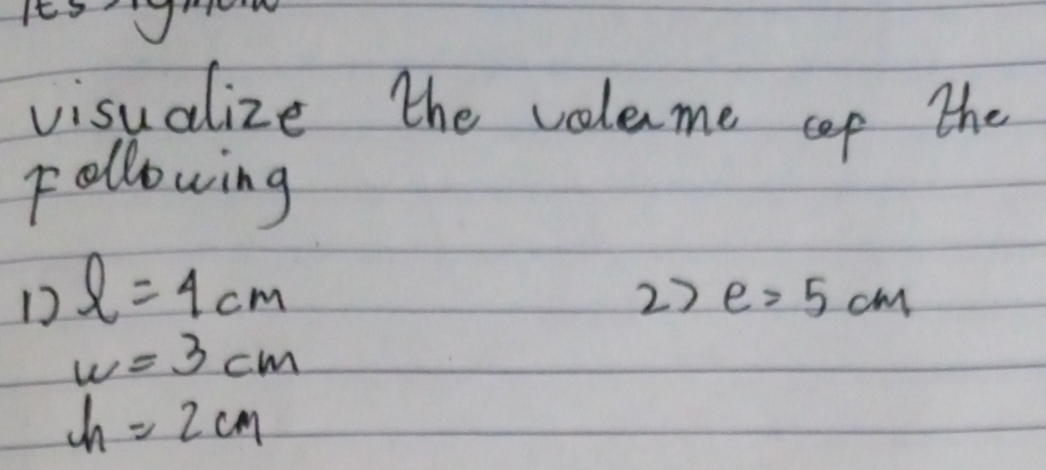 visualize the volume of the
Following
1) l = 4 cm 2) e = 5 cm
w = 3 cm
h = 2 cm